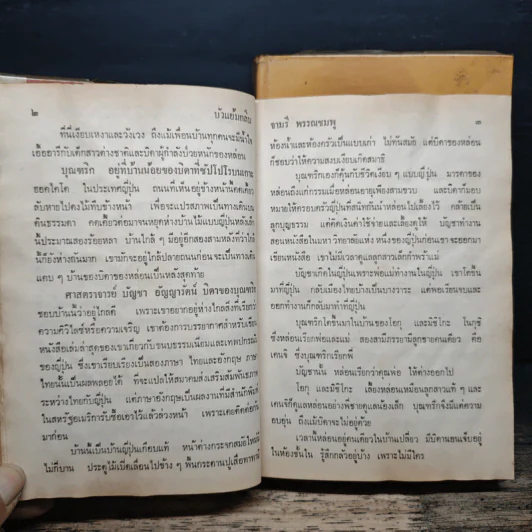 ๒
บัวแย้มกลีบ
ที่นี่เงียบเหงาและวังเวง ถึงแม้เพื่อนบ้านทุกคนจะมีน้ำใจ
เอื้ออารีกับเด็กสาวต่างชาติและบิดาผู้กำลังป่วยหนักของหล่อน
บุณฑริก อยู่ที่บ้านน้อยของบิดาที่ชัปโปโรบนเกาะ
ฮอคไคโด ในประเทศญี่ปุ่น ถนนที่เห็นอยู่ข้างหน้าคดเคี้ยว
ลับหายไปคงไม้ทึบข้างหน้า เพราะจะแปรสภาพเป็นทางเดินบน
ดินธรรมดา คดเคี้ยวต่อมาจนหยุดห่างบ้านไม้แบบญี่ปุ่นหลังเล็ก
นประมาณสองร้อยหลา บ้านใกล้ ๆ มีอยู่อีกสองสามหลังที่ว่าใกล้
นก็ยังห่างกันมาก เขามักจะอยู่ใกล้ปลายถนนก่อนจะเป็นทางเดิน
แคบ ๆ บ้านของบิดาของหล่อนเป็นหลังสุดท้าย
ศาสตราจารย์ บัญชา อัญญารัตน์ บิดาของบุณฑริก
ชอบบ้านนี้ว่าอยู่ไกลดี เพราะเขาอยากอยู่ห่างไกลสิ่งที่เรียกว่า
ความศิวิไลซ์หรือความเจริญ เขาต้องการบรรยากาศสำหรับเขียน
หนังสือเล่มล่าสุดของเขาเกี่ยวกับขนบธรรมเนียมและเทพปกรณัม
ของญี่ปุ่น ซึ่งเขาเรียบเรียงเป็นสองภาษา ไทยและอังกฤษ ภาษา
ไทยนั้นเป็นผลพลอยได้ ที่จะแปลให้สมาคมส่งเสริมสัมพันธภาพ
ระหว่างไทยกับญี่ปุ่น แต่ภาษาอังกฤษเป็นผลงานที่มีสำนักพิมพ์
ในสหรัฐอเมริการับซื้อเอาไว้แล้วล่วงหน้า เพราะเคยติดต่อกัน
มาก่อน
บ้านนี้เป็นบ้านญี่ปุ่นเกือบแท้ หน้าต่างกระจกสมัยใหม่
ไม่กี่บาน ประตูไม้เบิดเลื่อนไปข้าง ๆ พื้นกระดานปูเสื่อทาทามิ
ชามรี พรรณชมพู
๓
ห้องน้ำและห้องครัวเป็นแบบเก่า ไม่ทันสมัย แต่บิดาของหล่อน
ก็ชอบว่าให้ความสงบเงียบเกิดสมาธิ
บุณฑริกเองก็คุ้นกับชีวิตเงียบง ๆ แบบญี่ปุ่น มารดาของ
หล่อนถึงแก่กรรมเมื่อหล่อนอายุเพียงสามขวบ และบิดาก็มอบ
หมายให้ครอบครัวญี่ปุ่นที่สนิทกันนำหล่อนไปเลี้ยงไว้ คล้ายเป็น
ลูกบุญธรรม แต่คิดเงินค่าใช้จ่ายและเลี้ยงดูให้ บัญชาทำงาน
สอนหนังสือในมหาวิทยาลัยแห่งหนึ่งของญี่ปุ่นก่อนเขาจะออกมา
เขียนหนังสือ เขาไม่มีเวลาดูแลลูกสาวเล็กกำพร้าแม่
บัญชาเกิดในญี่ปุ่นเพราะพ่อแม่ทำงานในญี่ปุ่น เขาโตขึ้น
มาที่ญี่ปุ่น กลับเมืองไทยบ้างเป็นบางวาระ แต่พอเรียนจบและ
ออกทำงานก็กลับมาทำที่ญี่ปุ่น
บุณฑริกโตขึ้นมาในบ้านของโยกุ และมิชิโกะ โนกุชิ
ซึ่งหล่อนเรียกพ่อและแม่ สองสามีภรรยามีลูกชายคนเดียว คือ
เคนจิ ซึ่งบุณฑริกเรียกพี่
บัญชานั้น หล่อนเรียกว่าคุณพ่อ ให้ต่างออกไป
โยกุ และมิชิโกะ เลี้ยงหล่อนเหมือนลูกสาวแท้ ๆ และ
เคนจิก็ดูแลหล่อนอย่างพี่ชายดูแลน้องเล็ก บุณฑริกจึงมีแต่ความ
อบอุ่น ถึงแม้บิดาจะไม่อยู่ด้วย
เวลานี้หล่อนอยู่คนเดียวในบ้านเปลี่ยว มีบิดานอนเจ็บอยู่
ในห้องชั้นใน รู้สึกกลัวอยู่บ้าง เพราะไม่มีใคร